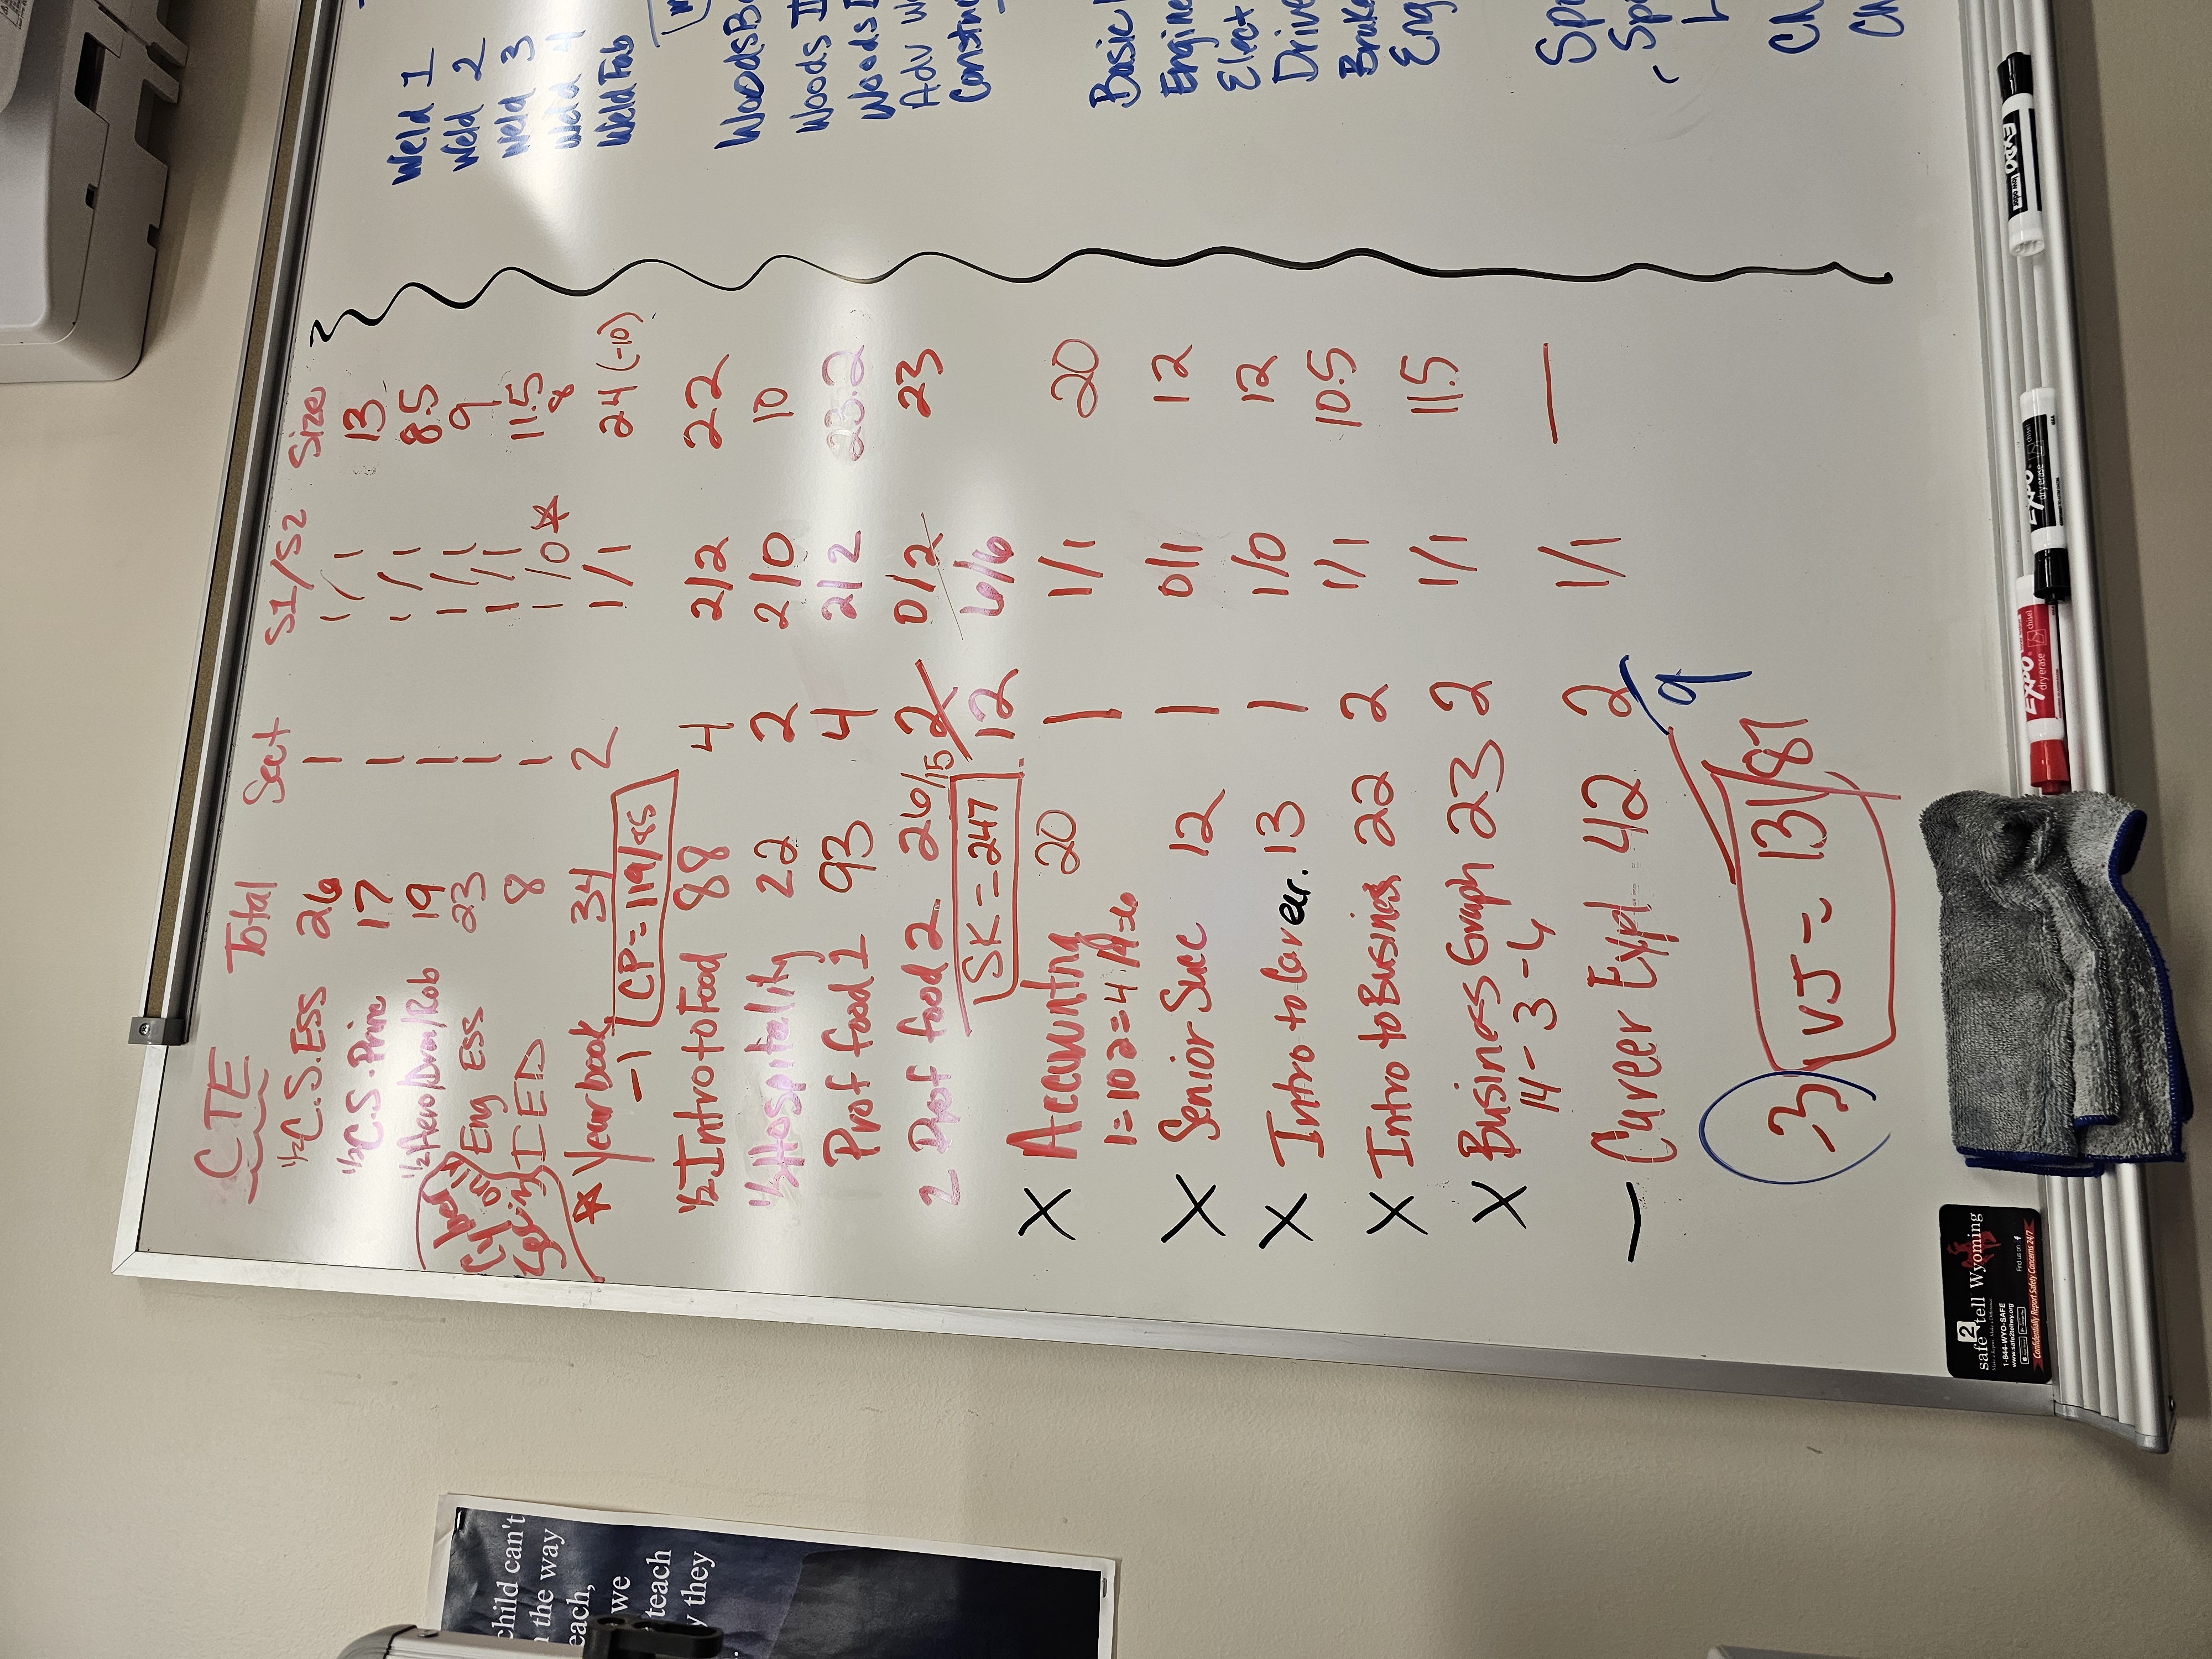 CTE Total Sect S1/S2 Size
1/2 C.S. Ess 26 1 1/1 13
1/2 C.S. Prin 17 1 1/1 8.5
1/2 Aero/Dron/Rob 19 1 1/1 9
Eng Ess 23 1 1/1 11.5
IED 8 1 1/0* 8
* Yearbook 34 2 1/1 24 (-10)
-1 CP = 119/85
1/2 Intro to Food 88 4 2/2 22
1/2 Hospitality 22 2 2/0 10
Prof food 1 93 4 2/2 23.2
2 Prof food 2. 26/15 2 0/2 23
SK = 247 12 6/6
X Accounting 20 1 1/1 20
1=10 2=4
X Senior Succ 12 1 0/1 12
X Intro to Career. 13 1 1/0 12
X Intro to Business 22 2 1/1 10.5
X Business Graph 23 2 1/1 11.5
14 - 3 - 4
— Career Expl 42 2 1/1 —
9
-3 VJ = 131/87
Weld 1
Weld 2
Weld 3
Weld 4
Weld Fab
Woods II
Woods
Adv
Constru
Basic
Engine
Elect
Drive
Brake
Eng
EXPO
low odor
EXPO
dry erase
chisel
EXPO
dry erase
chisel
safe 2 tell Wyoming
1-844-WYO-SAFE
www.safe2tellwy.org
Find us on f
Confidentially Report Safety Concerns 24/7
child can't
the way
each,
we
teach
they